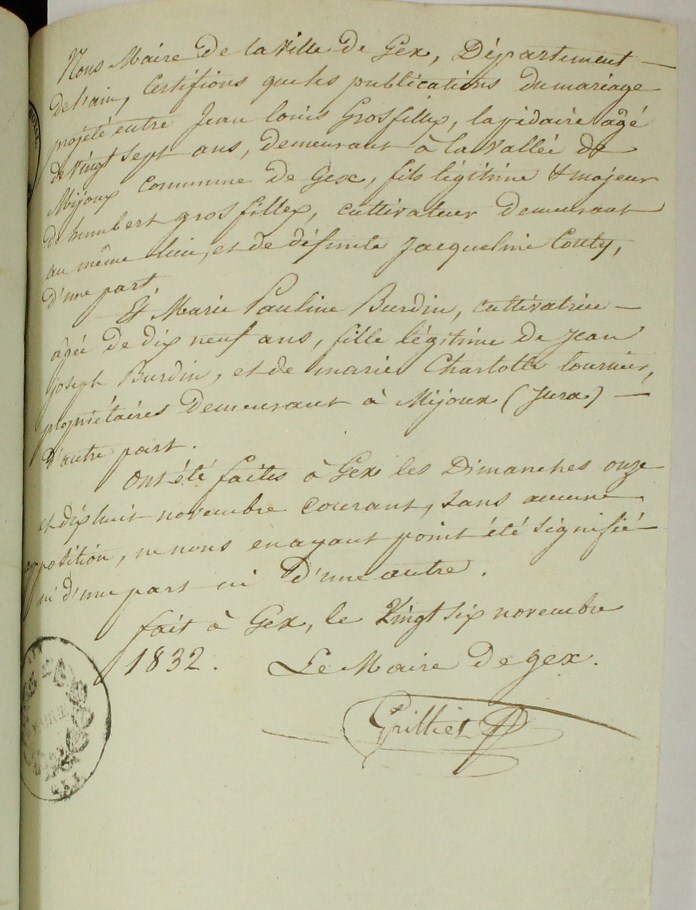 Nous Maire de la Ville de Gex, Département
De l'ain, Certifions que les publications du mariage
projeté entre Jean Louis Grosfillex, lapidaire agé
de vingt sept ans, demeurant à la Vallée de
Mijoux Commune de Gex, fils légitime & majeur
de humbert grosfillex, cultivateur demeurant
au même lieu, et de défunte Jacqueline Couty,
D'une part
Et Marie Pauline Burdin, cultivatrice
agée de dix neuf ans, fille légitime de Jean
joseph Burdin, et de marie Charlotte tournier,
propriétaires Demeurant à Mijoux (Jura)
D'autre part.
Ont été faites à Gex les Dimanches onze
et dix huit novembre courant, sans aucune
opposition, ne nous en ayant point été signifié
ni d'une part ni D'une autre.
fait à Gex, le Vingt six novembre
1832. Le Maire De gex.
Grilliet